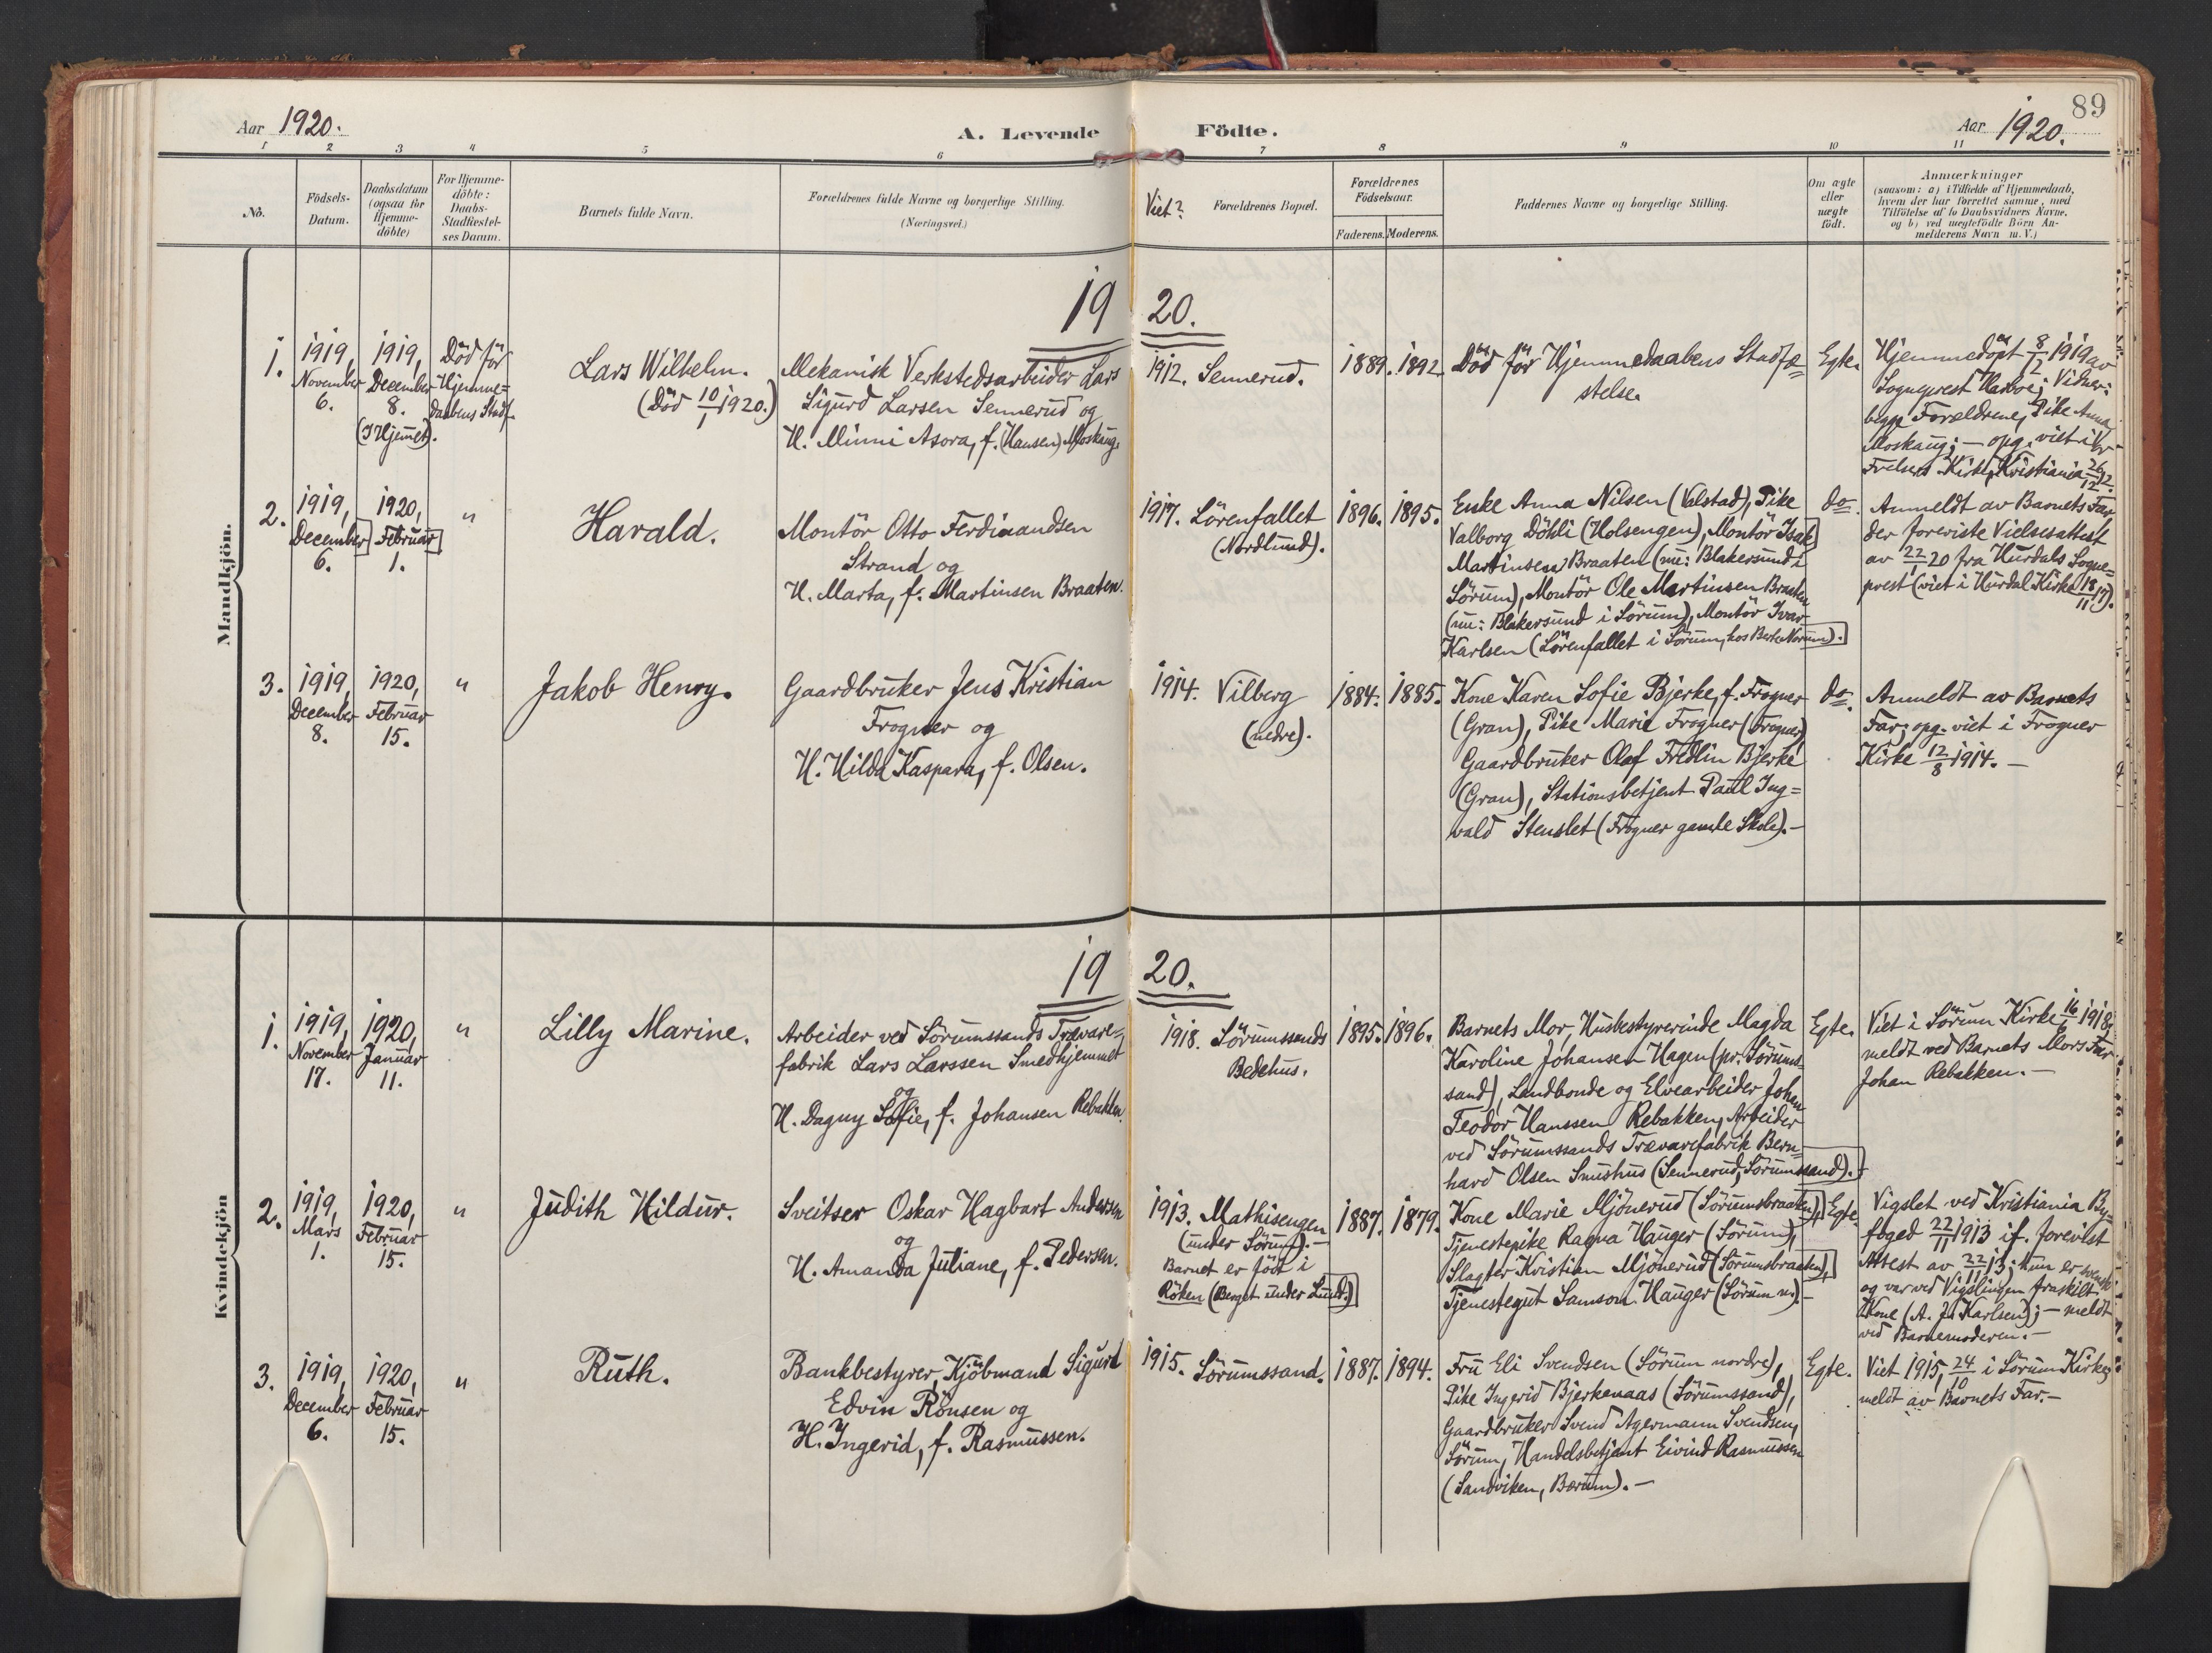 89
Aar 1920.
A. Levende Födte.
Aar 1920.
1 2 3 4 5 6 7 8 9 10 11
No.
Födsels-
Datum.
Daabsdatum
(ogsaa for
Hjemme-
döbte)
For Hjemme-
döbte:
Daabs-
Stadfæstel-
ses Datum.
Barnets fulde Navn.
Forældrenes fulde Navne og borgerlige Stilling.
(Næringsvei.)
Viet?
Forældrenes Bopæl.
Forældrenes
Födselsaar.
Faderens. Moderens.
Faddernes Navne og borgerlige Stilling.
Om ægte
eller
uægte
födt.
Anmærkninger
(saasom: a) i Tilfælde af Hjemmedaab,
hvem der har forrettet samme, med
Tilföielse af to Daabsvidners Navne,
og b) ved uægtefödte Börn An-
melderens Navn m. V.)
Mandkjön.
19 20.
1.
1919,
November
6.
1919,
December
8.
(I Hjemmet).
Död för
Hjemme=
daabens Stadf.
Lars Wilhelm.
(Död 10/1 1920.)
Mekanisk Verkstedsarbeider Lars
Sigurd Larsen Sennerud og
H. Minni Asora, f. (Hansen) Moskaug.
1912. Sennerud.
1889. 1892.
Död för Hjemmedaabens Stadfæ=
stelse.
Egte.
Hjemmedöpt 8/12 1919 av
Sogneprest Harboe; Vidner:
begge Forældrene, Pike Anna
Moskaug; — opg. viet i Vor
Frelsers Kirke, Kristiania 26/12 12.
2.
1919,
December
6.
1920,
Februar
1.
"
Harald.
Montör Otto Ferdinandsen
Strand og
H. Marta, f. Martinsen Braaten.
1917. Lörenfallet
(Nordlund).
1896. 1895.
Enke Anna Nilsen (Valstad), Pike
Valborg Döhli (Holsengen), Montör Isak
Martinsen Braaten (nu: Blakersund i
Sörum), Montör Ole Martinsen Braaten
(nu: Blakersund i Sörum), Montör Ivar
Karlsen (Lörenfallet i Sörum, hos Berte Norum).
do.
Anmeldt av Barnets Far
der foreviste Vielsesattest
av 22/1 20 fra Hurdals Sogne=
prest (viet i Hurdal Kirke 18/11 17).
3.
1919,
December
8.
1920,
Februar
15.
"
Jakob Henry.
Gaardbruker Jens Kristian
Frogner og
H. Hilda Kaspara, f. Olsen.
1914. Vilberg
(nedre).
1884. 1885.
Kone Karen Sofie Bjerke, f. Frogner
(Gran), Pike Marie Frogner (Frogner)
Gaardbruker Olaf Fredlin Bjerke
(Gran), Stationsbetjent Paul Ing=
vald Stenslet (Frogner gamle Skole). —
do.
Anmeldt av Barnets
Far; opg. viet i Frogner
Kirke 12/8 1914. —
Kvindekjön
19 20.
1.
1919,
November
17.
1920,
Januar
11.
"
Lilly Marine.
Arbeider ved Sörumssands Trævare=
fabrik Lars Larssen Smedhjemmet
og
H. Dagny Sofie, f. Johansen Rebakken.
1918. Sörumssands
Bedehus.
1895. 1896.
Barnets Mor, Husbestyrerinde Magda
Karoline Johansen Hagen (pr. Sörums=
sand), Landbonde og Elvearbeider Johan
Teodor Hanssen Rebakken, Arbeider
ved Sörumssands Trævarefabrik Bern=
hard Olsen Smushus (Sennerud, Sörumssand). —
Egte.
Viet i Sörum Kirke 16/6 1918,
meldt ved Barnets Mors Far
Johan Rebakken. —
2.
1919,
Mars
1.
1920,
Februar
15.
"
Judith Hildur.
Sveitser Oskar Hagbart Andersen
og
H. Amanda Juliane, f. Pedersen.
1913. Mathisengen
(under Sörum). —
Barnet er födt i
Röken (Berget under Lund.)
1887. 1879.
Kone Marie Mjönerud (Sörumsbraaten),
Tjenestepike Ragna Hauger (Sörum),
Slagter Kristian Mjönerud (Sörumsbraaten),
Tjenestegut Samson Hauger (Sörum nr). —
Egte.
Vigslet ved Kristiania By=
foged 22/11 1913 if. forevist
Attest av 22/11 13; hun er svensk
og var ved Vigslingen fraskilt
Kone (A. J. Karlsen); — meldt
ved Barnemoderen. —
3.
1919,
December
6.
1920,
Februar
15.
"
Ruth.
Bankbestyrer, Kjöbmand Sigurd
Edvin Rönsen og
H. Ingerid, f. Rasmussen.
1915. Sörumssand.
1887. 1894.
Fru Eli Svendsen (Sörum nordre),
Pike Ingerid Bjerkenaas (Sörumssand),
Gaardbruker Svend Agermann Svendsen,
Sörum, Handelsbetjent Eivind Rasmussen
(Sandviken, Bærum). —
Egte.
Viet 1915, 24/10 i Sörum Kirke;
meldt av Barnets Far. —